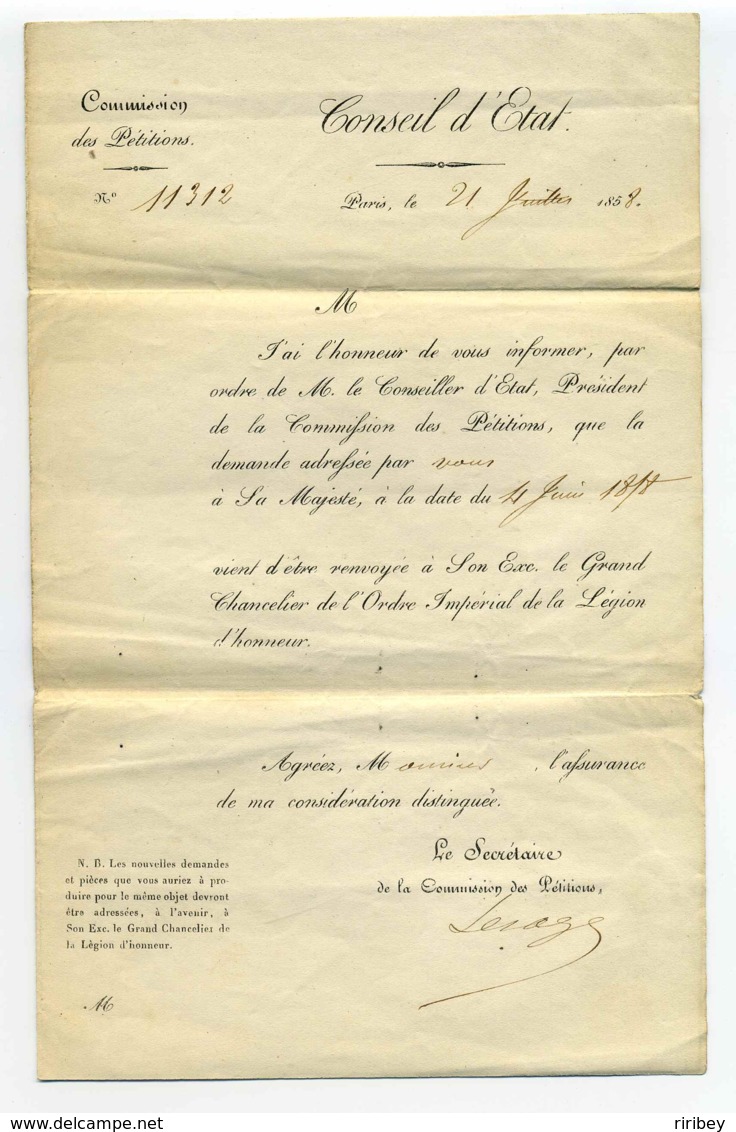 Commission
des Pétitions.
Conseil d'Etat.
N° 11312
Paris, le 21 Juillet 1858.
M
J'ai l'honneur de vous informer, par
ordre de M. le Conseiller d'Etat, Président
de la Commission des Pétitions, que la
demande adressée par vous
à Sa Majesté, à la date du 4 Juin 1858
vient d'être renvoyée à Son Exc. le Grand
Chancelier de l'Ordre Impérial de la Légion
d'honneur.
Agréez, Monsieur, l'assurance
de ma considération distinguée.
Le Secrétaire
de la Commission des Pétitions,
N. B. Les nouvelles demandes
et pièces que vous auriez à pro-
duire pour le même objet devront
être adressées, à l'avenir, à
Son Exc. le Grand Chancelier de
la Légion d'honneur.
M
riribey